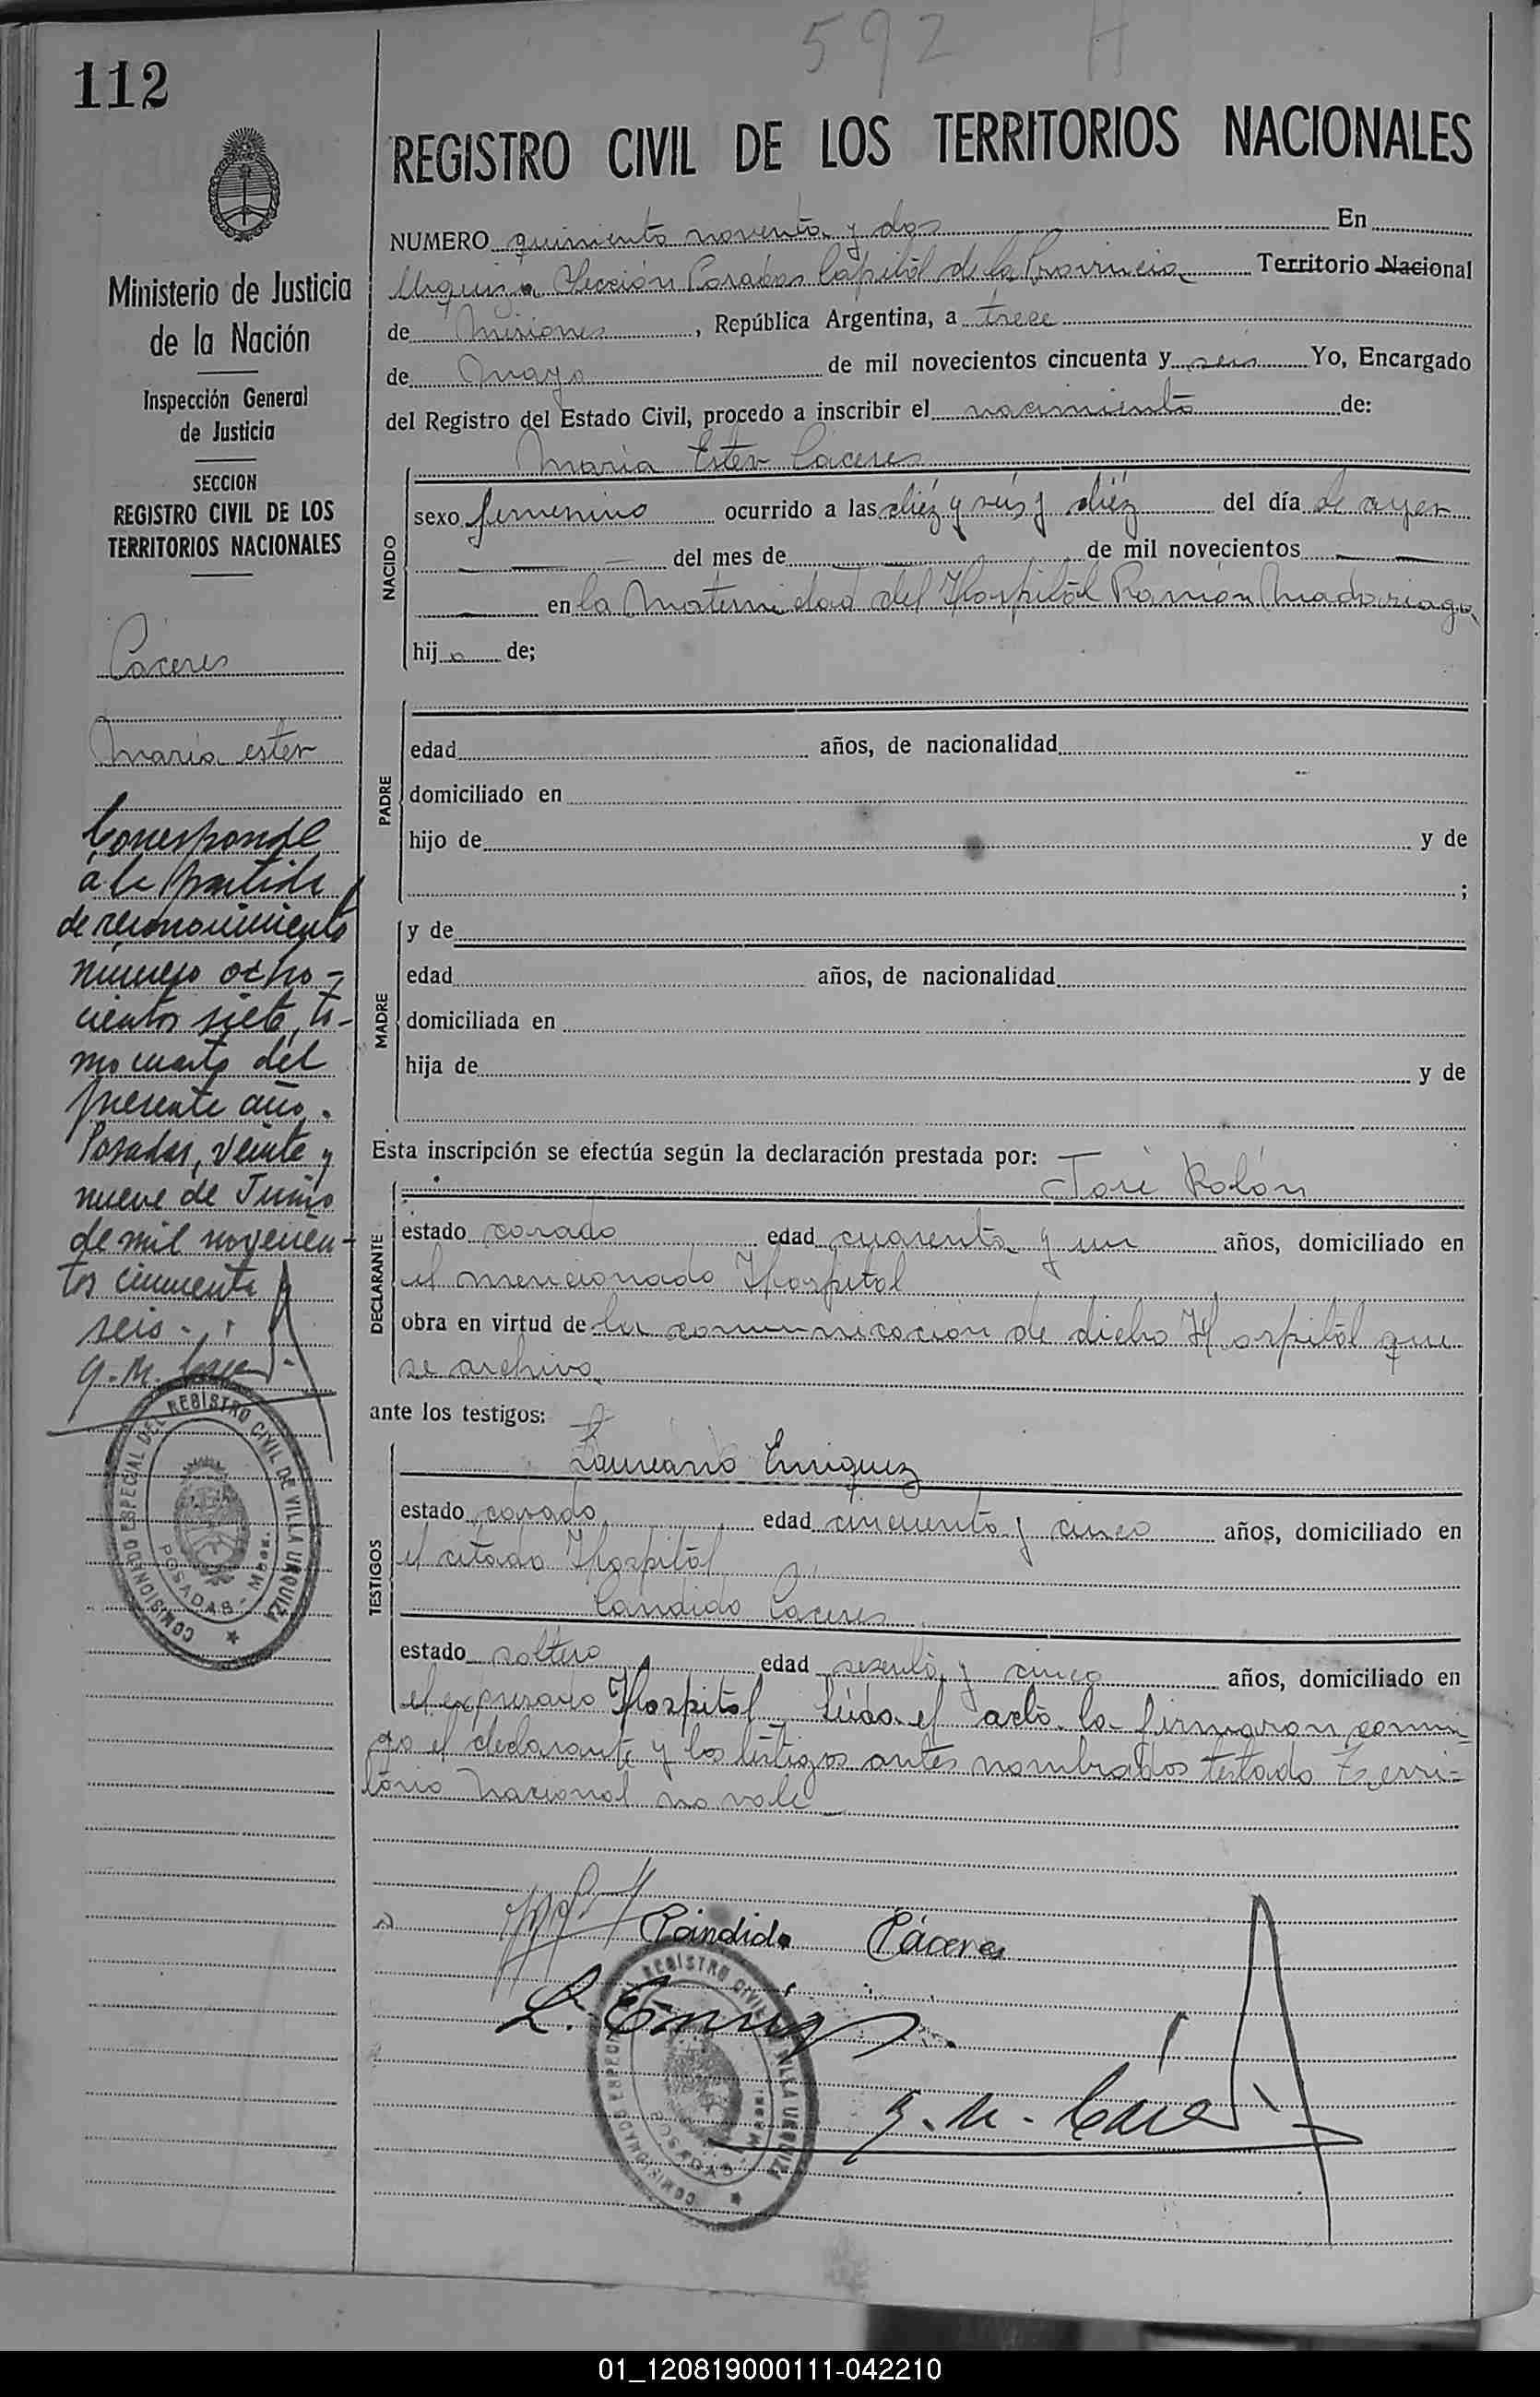 592 H
112
REGISTRO CIVIL DE LOS TERRITORIOS NACIONALES
Ministerio de Justicia
de la Nación
Inspección General
de Justicia
SECCION
REGISTRO CIVIL DE LOS
TERRITORIOS NACIONALES
Caceres
Maria ester
Corresponde
a la partida
de reconocimiento
número ocho-
cientos siete, to-
mo cuarto del
presente año.
Posadas, veinte y
nueve de Junio
de mil novecien-
tos cincuenta y
seis.-
COMISIONADO ESPECIAL DEL REGISTRO CIVIL DE VILLA URQUIZA
POSADAS - MNES.
NUMERO quiniento noventa y dos En
Urquiza Sección Posadas Capital de la Provincia Territorio Nacional
de Misiones, República Argentina, a trece
de Mayo de mil novecientos cincuenta y seis Yo, Encargado
del Registro del Estado Civil, procedo a inscribir el nacimiento de:
Maria Ester Caceres
NACIDO
sexo femenino ocurrido a las diéz y seis y diéz del día de ayer
del mes de de mil novecientos
en la Maternidad del Hospital Ramón Madariaga
hija de;
PADRE
edad años, de nacionalidad
domiciliado en
hijo de y de
;
MADRE
y de
edad años, de nacionalidad
domiciliada en
hija de y de
Esta inscripción se efectúa según la declaración prestada por:
José Rolón
DECLARANTE
estado casado edad cuarenta y un años, domiciliado en
el mencionado Hospital
obra en virtud de la comunicacion de dicho Hospital que
se archiva
ante los testigos:
Laureano Enriquez
TESTIGOS
estado casado edad cincuenta y cinco años, domiciliado en
el citado Hospital
Candido Caceres
estado soltero edad sesenta y cinco años, domiciliado en
el expresado Hospital Leida el acta la firmaron conmi-
go el declarante y los testigos antes nombrados testado Terri-
torio Nacional no vale
Cándido Cáceres
L. Enriq
COMISIONADO ESPECIAL DEL REGISTRO CIVIL DE VILLA URQUIZA
POSADAS - MNES.
01_120819000111-042210